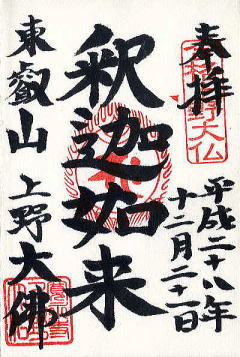 奉拝
平成二十八年
十二月二十一日
釈迦如来
東叡山
上野大佛